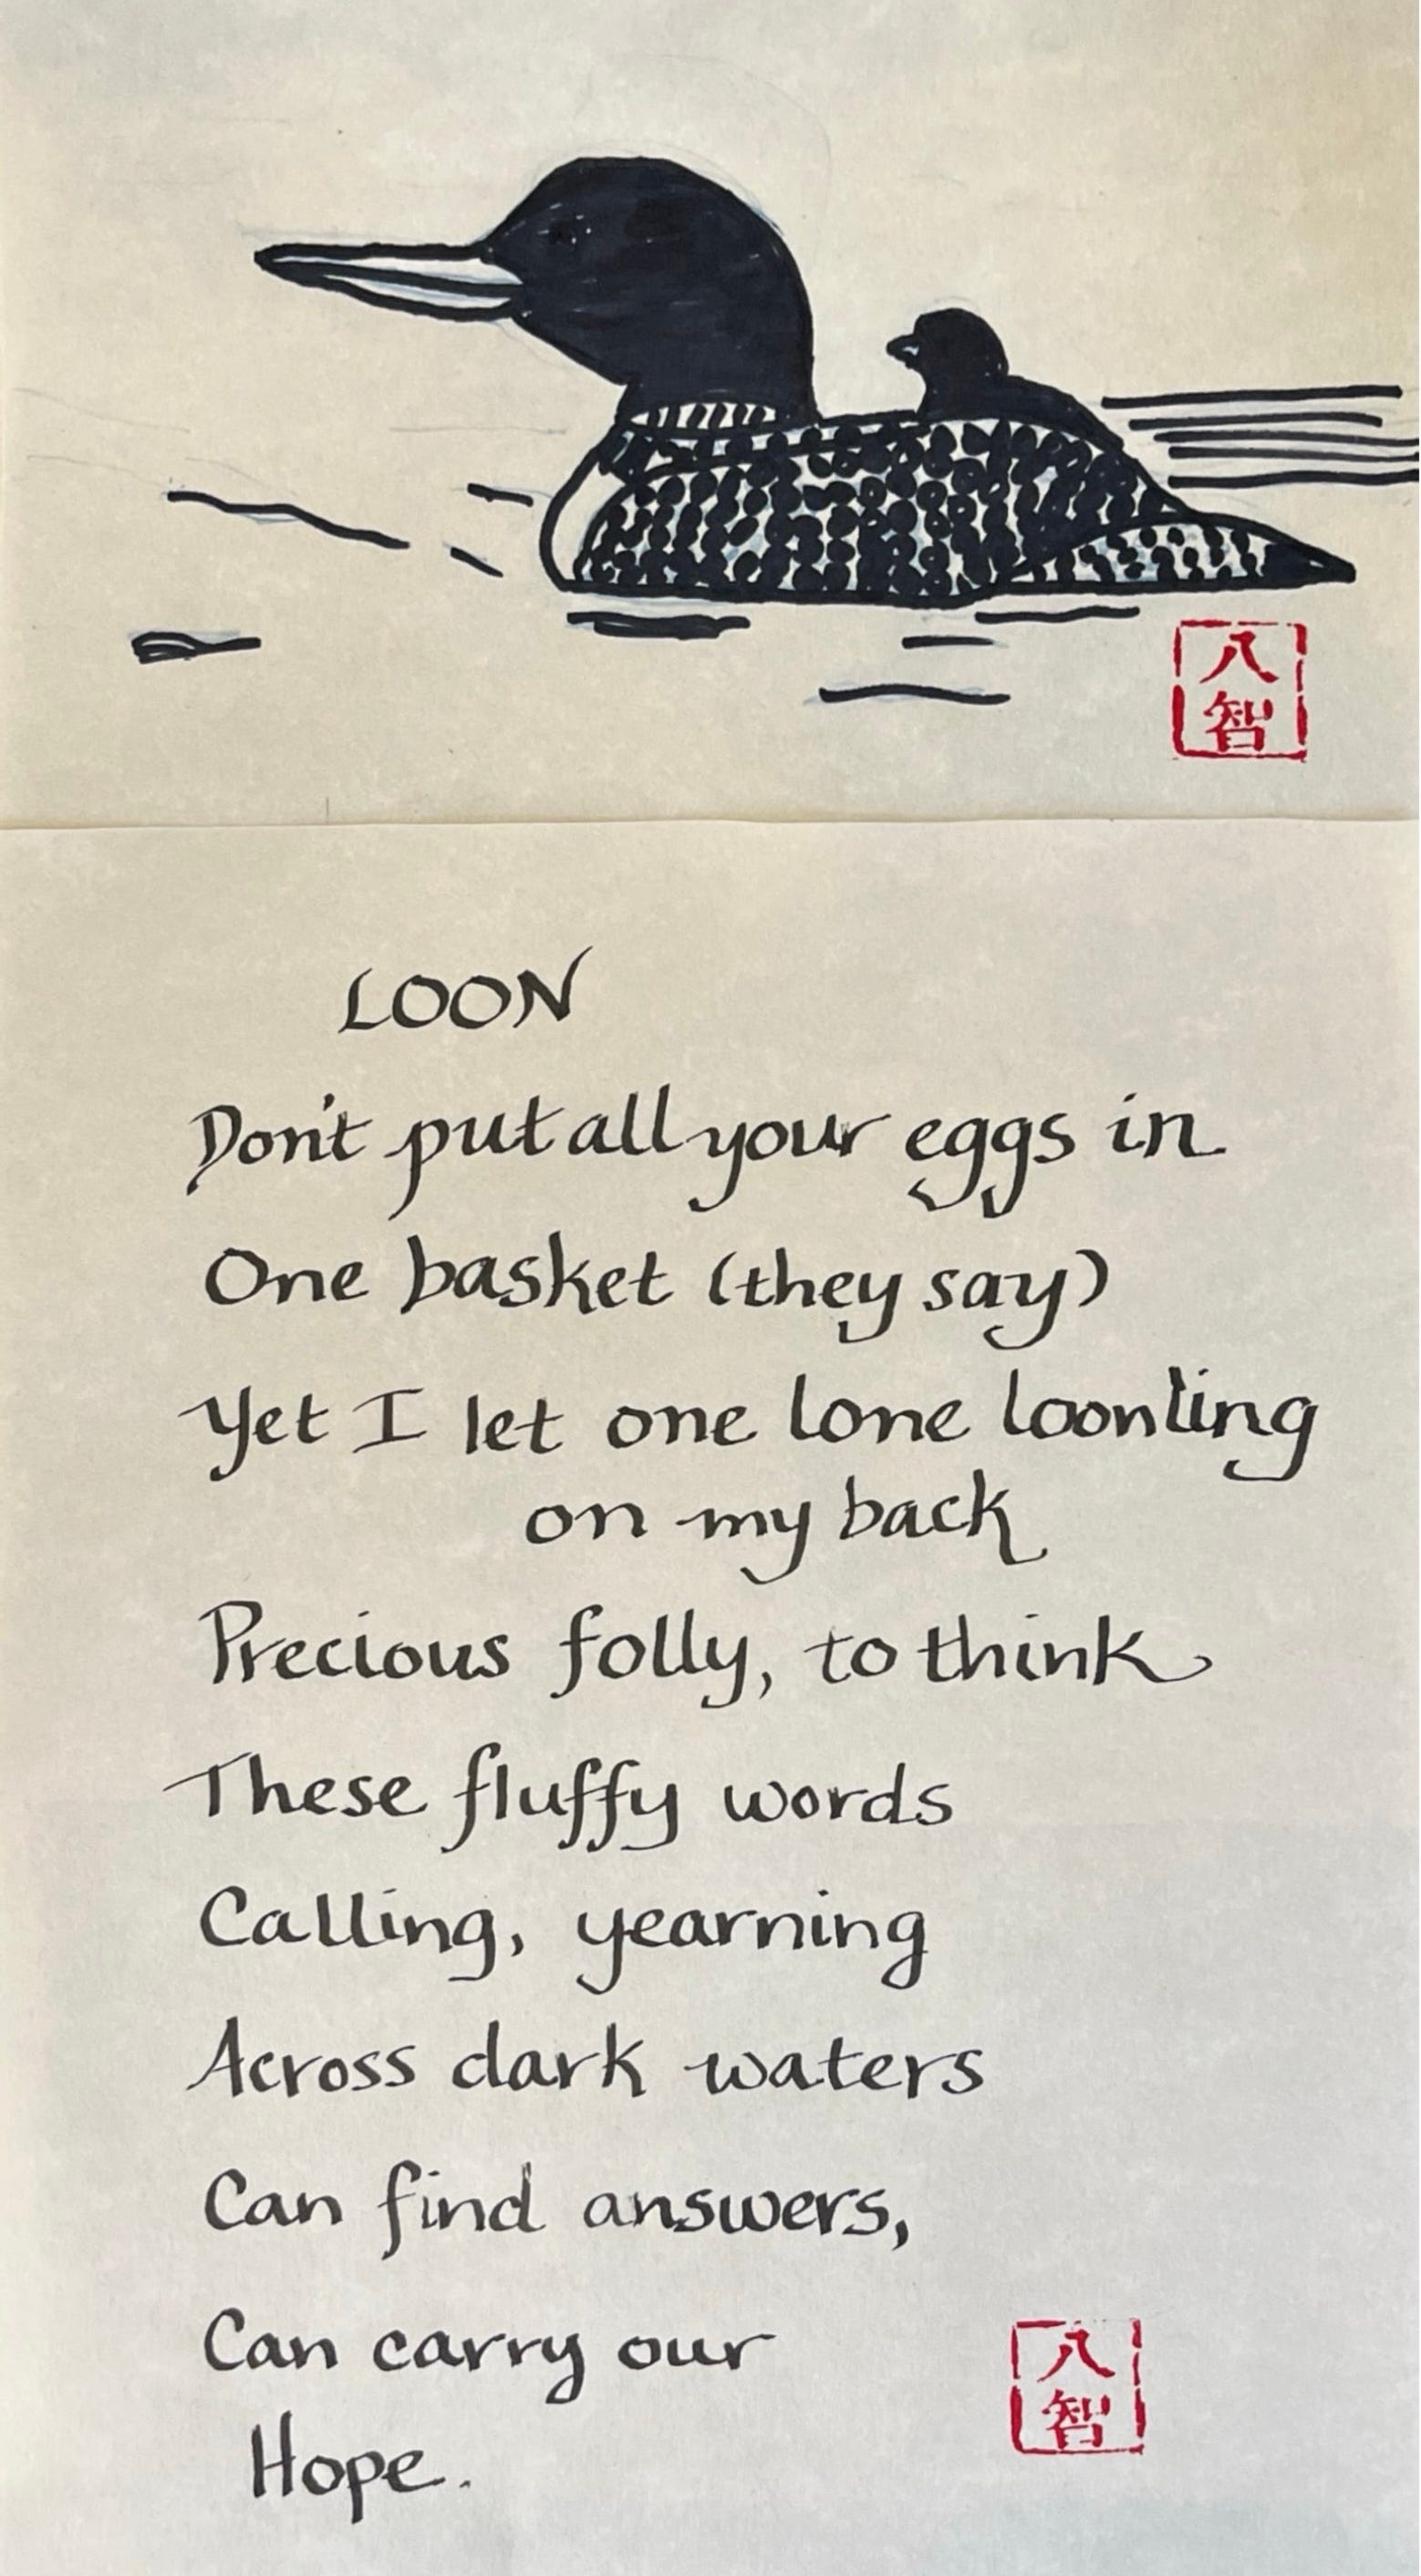 八
智
LOON
Don't put all your eggs in
One basket (they say)
Yet I let one lone loonling
on my back
Precious folly, to think
These fluffy words
Calling, yearning
Across dark waters
Can find answers,
Can carry our
Hope.
八
智